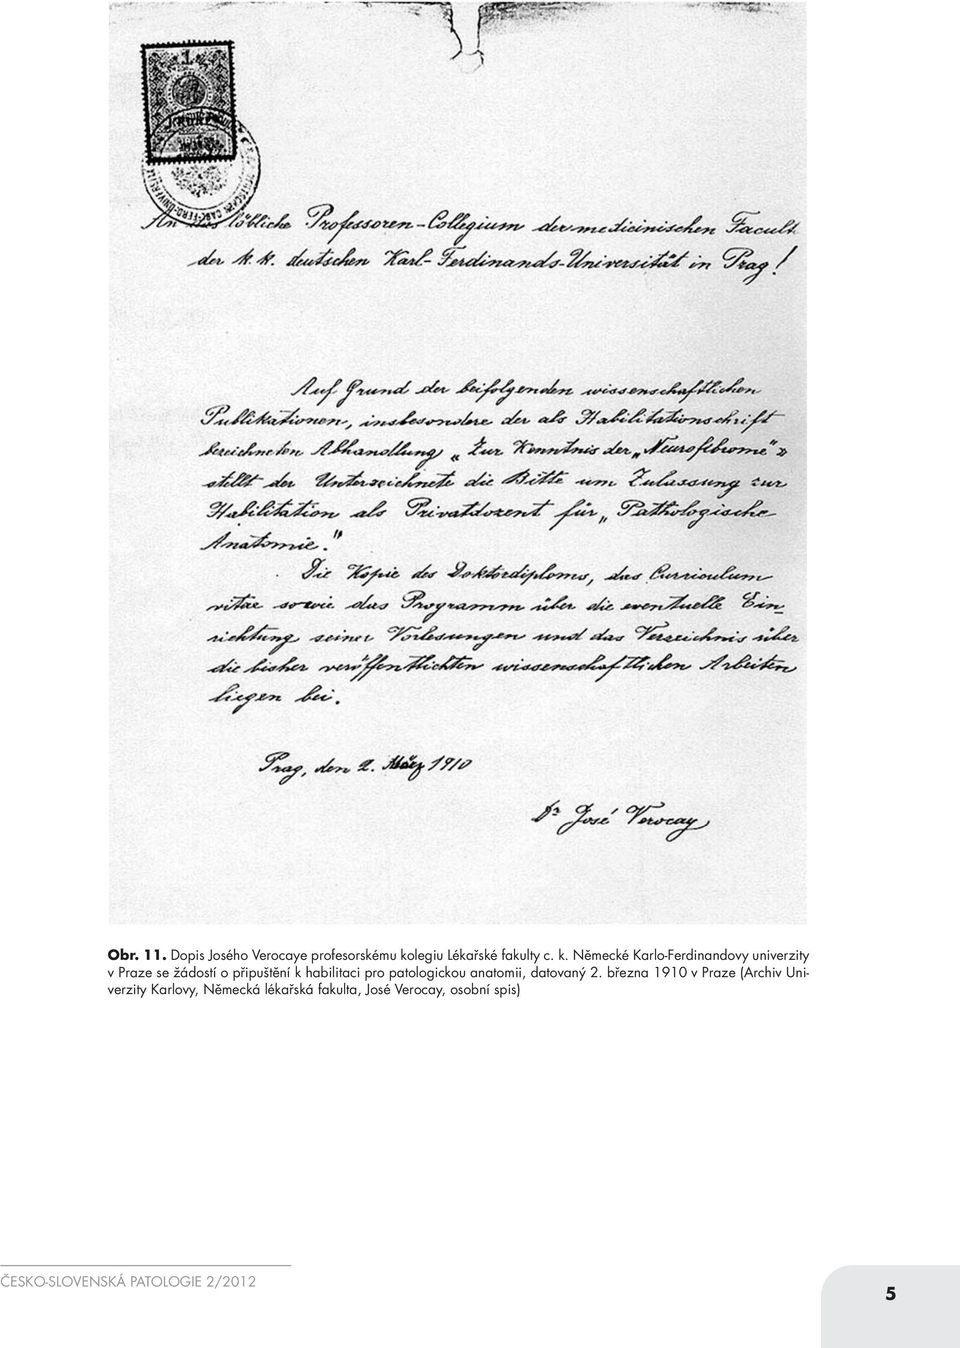 1
An das löbliche Professoren-Collegium der medicinischen Facult.
der k. k. deutschen Karl-Ferdinands-Universität in Prag!
Auf Grund der beifolgenden wissenschaftlichen
Publikationen, insbesondere der als Habilitationschrift
bezeichneten Abhandlung „Zur Kenntnis der „Neurofibrome"»
stellt der Unterzeichnete die Bitte um Zulassung zur
Habilitation als Privatdozent für „Pathologische
Anatomie."
Die Kopie des Doktordiploms, das Curriculum
vitae sowie das Programm über die eventuelle Ein-
richtung seiner Vorlesungen und das Verzeichnis über
die bisher veröffentlichten wissenschaftlichen Arbeiten
liegen bei.
Prag, den 2. März 1910
Dr José Verocay
Obr. 11. Dopis Josého Verocaye profesorskému kolegiu Lékařské fakulty c. k. Německé Karlo-Ferdinandovy univerzity
v Praze se žádostí o připuštění k habilitaci pro patologickou anatomii, datovaný 2. března 1910 v Praze (Archiv Uni-
verzity Karlovy, Německá lékařská fakulta, José Verocay, osobní spis)
ČESKO-SLOVENSKÁ PATOLOGIE 2/2012
5